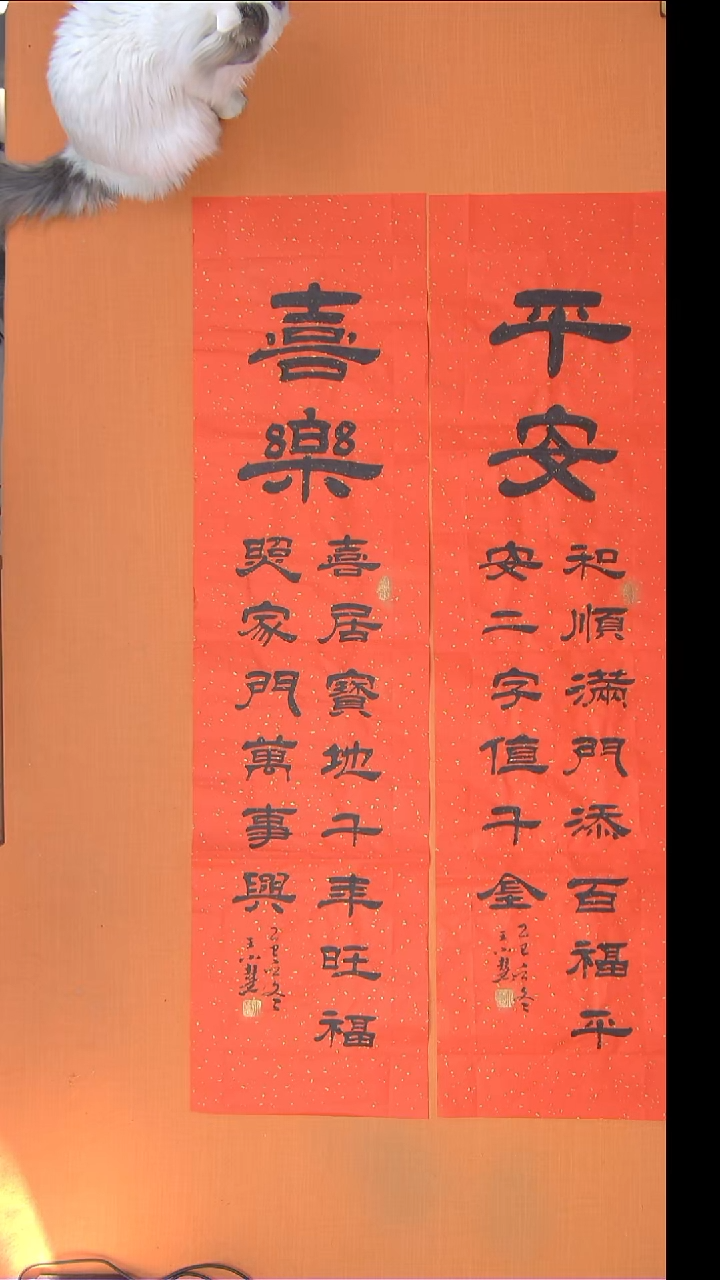 平安
和順滿門添百福平
安二字值千金
乙巳
喜樂
喜居寶地千年旺福
照家門萬事興
乙巳